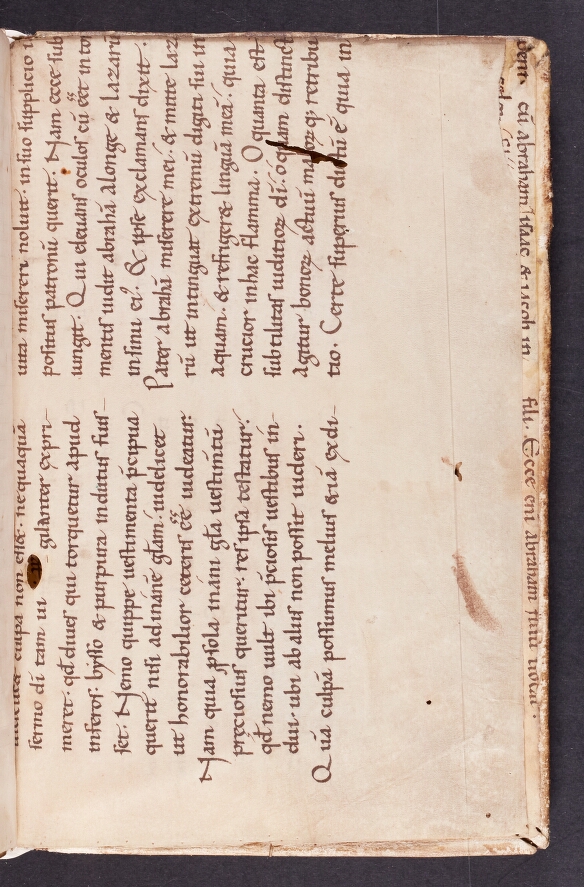 culpa non eet. nequaquā
sermo dī tam ui gilanter expri-
meret. qđ diues qui torquetur apud
inferos. bysso & purpura indutus fuis-
set. Nemo quippe uestimenta p̄cipua
querit nisi ad inanē glām. uidelicet
ut honorabilior ceteris eē uideatur.
Nam quia ꝓ sola inani glā uestimtū
preciosius queritur. res ipsa testatur.
qđ nemo uult ibi p̄ciosis uestibus in-
dui. ubi ab aliis non possit uideri.
Quā culpā possumus melius & iā ex di-
uita misereri noluit. in suo supplicio
positus patronū querit. Nam ecce sub
iungit. Qui eleuans oculos cū eēt in tor
mentis uidit abrahā a longe & lazarū
in sinu eiꝰ. & ipse exclamans dixit.
Pater abrahā miserere mei. & mitte laz
rū ut intinguat extremū digiti sui in
aquam. & refrigeret linguā meā. quia
crucior in hac flamma. O quanta est
subtilitas iudicioꝝ dī. o quam distincte
agitur bonoꝝ actuū maloꝝ q; retribu
tio. Certe superius dictū ē quia in
cū abraham isaac & iacob in
filii. Ecce eni abraham filiū uocat.